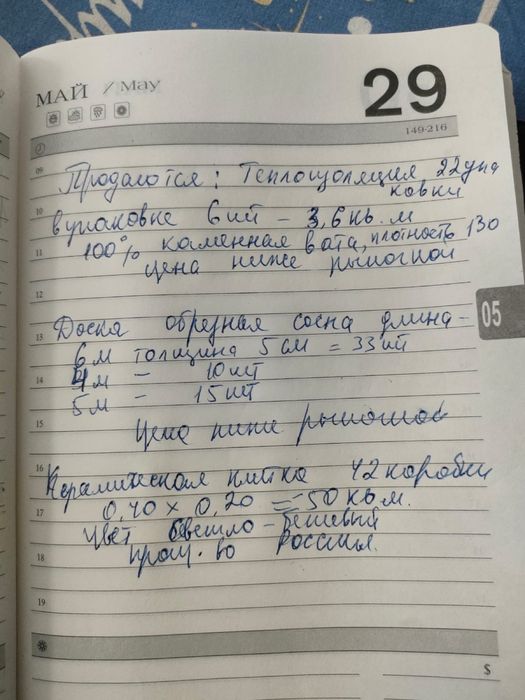 МАЙ / May
29
149-216
09 Продаются: Теплоизоляция 22 упа
ковки
10 в упаковке 6 шт – 3,6 кв. м
11 100% каменная вата, плотность 130
цена ниже рыночной
12
13 Доска обрезная сосна длина –
05
6 м толщина 5 см = 33 шт
14 4 м – 10 шт
5 м – 15 шт
15 Цена ниже рыночной
16 Керамическая плитка 42 коробки
17 0,40 х 0,20 = 50 кв м.
цвет светло – бежевый
18 произ. во Россия.
19
$